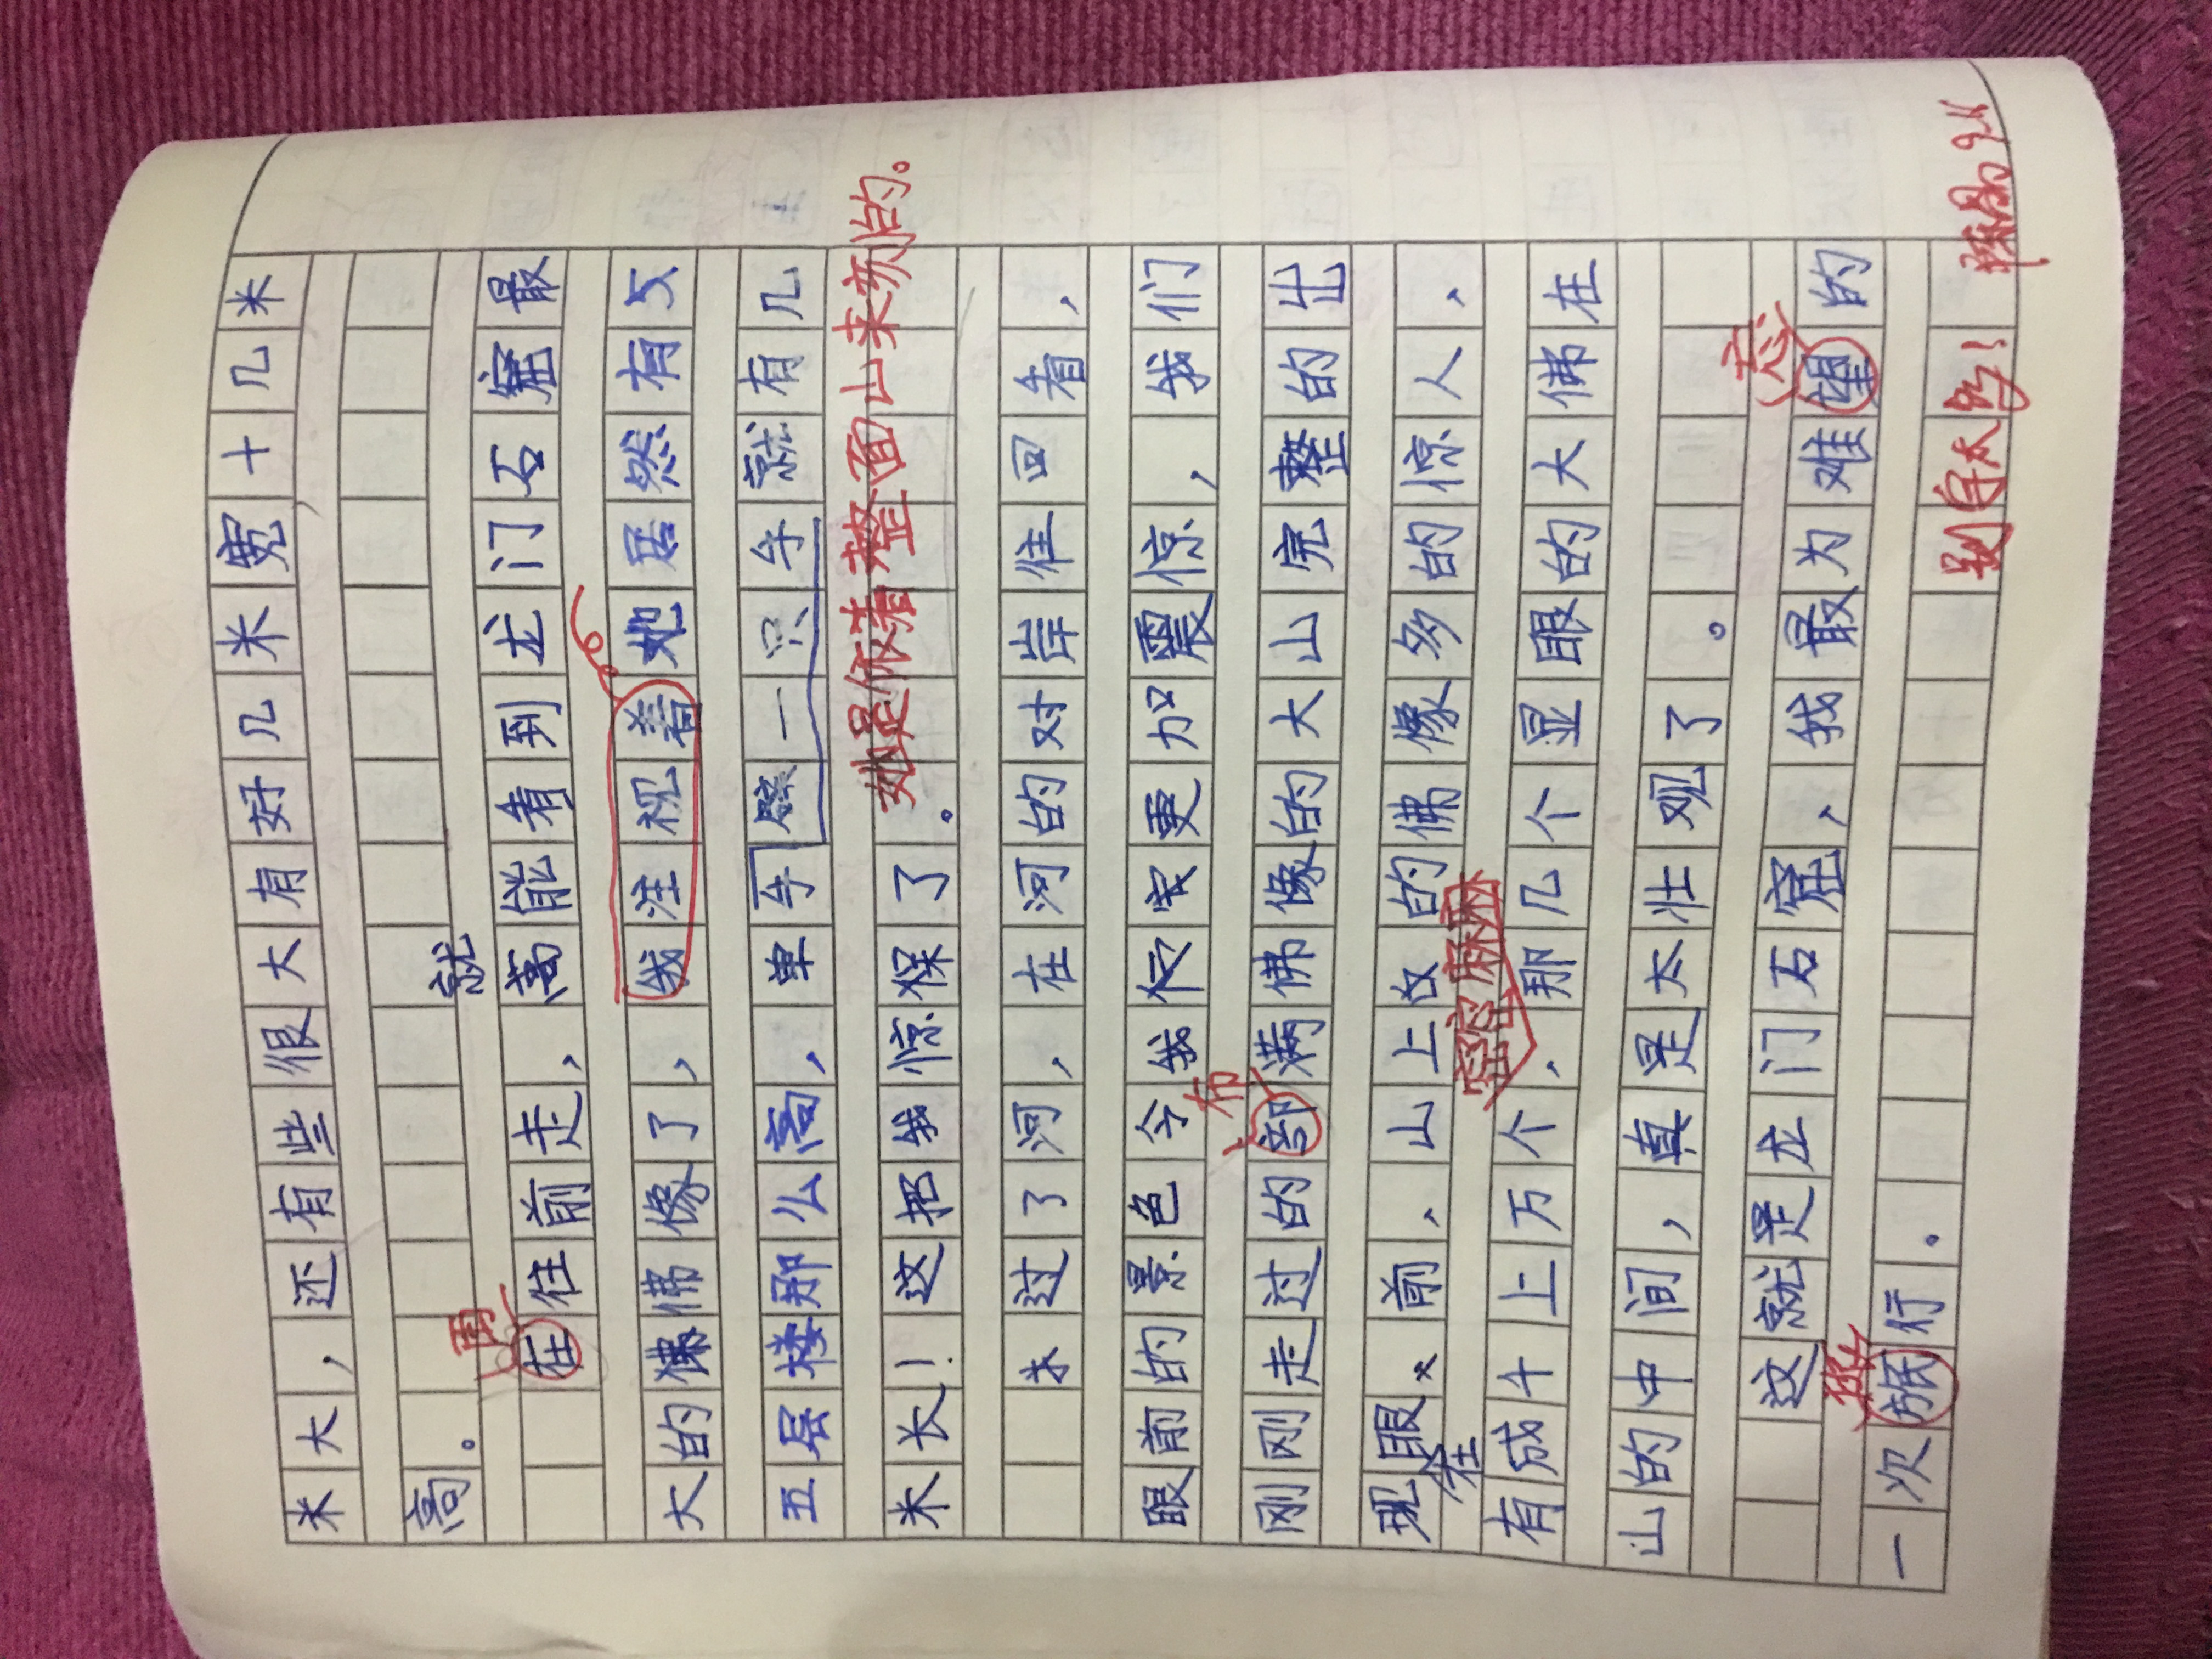 米大，还有些很大有好几米宽十几米
高。
就
再
在往前走，高能看到龙门石窟最
大的佛佛像了，我注视着她居然有父
五层楼那么高，单手臂一只手就有几
她是依着整面山来刻的。
米长！这把我惊呆了。
过了河，在河的对岸往回看，
眼前的景色令我更加震惊，我们
布
刚刚走过的部满佛像的大山完整的出
现眼前，山上的佛像多的惊人，
在
密密麻麻
有成千上万个，那几个显眼的大佛在
山的中间，真是太壮观了。
忘
这就是龙门石窟，我最为难望的
旅
一次旅行。
别自大的！
9-11